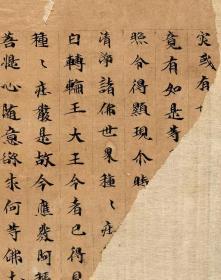 実或有
竟有如是等
照令得顯現尒時
清淨諸佛世界種〻庄
白轉輪王大王今者已得見
種〻庄嚴是故今應發阿
善提心随意欲求何等佛土